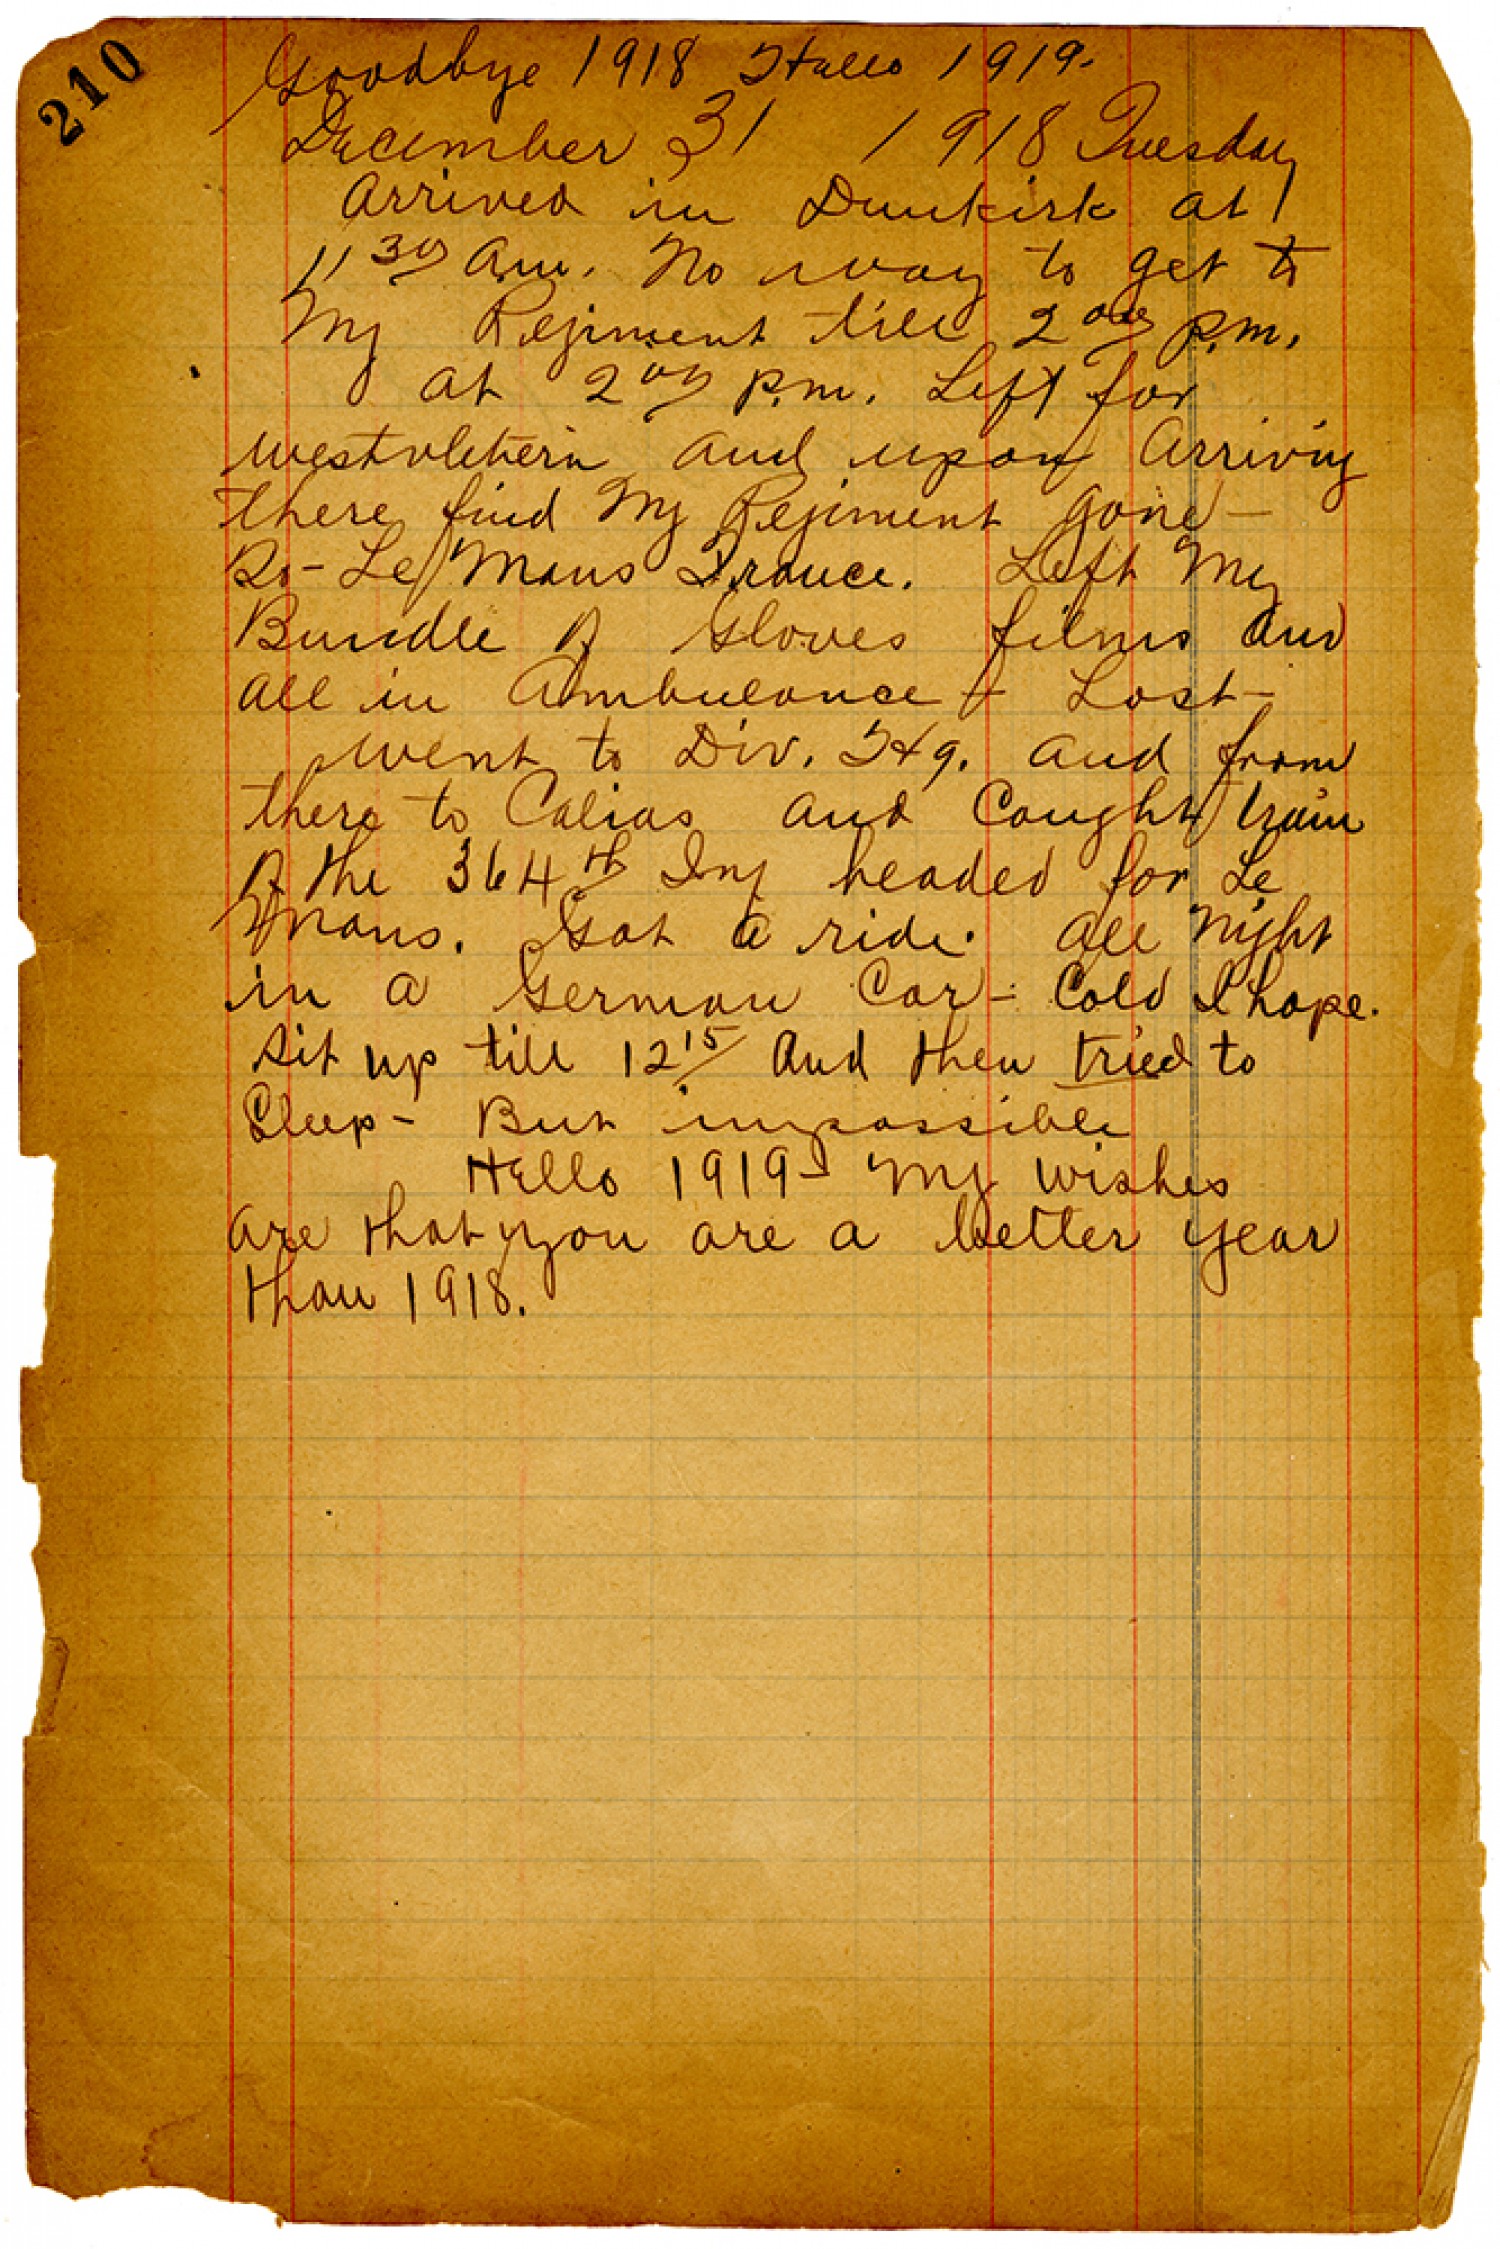 210
Goodbye 1918 Hello 1919.
December 31 1918 Tuesday
Arrived in Dunkirk at
11 30/ Am. No way to get to
My Regiment till 2 00/ p.m.
at 2 00/ p.m. Left for
Westvleteren and upon Arriving
there find My Regiment gone –
to – Le Mans France. Left My
Bundle of Gloves films and
all in Ambulance + Lost –
Went to Div. Hq. and from
there to Calias and Caught train
of the 364th Inf headed for Le
Mans. Got a ride. All Night
in a German Car – Cold I hope.
Sit up till 12 15/ And then tried to
Sleep – But impossible
Hello 1919 – My wishes
are that you are a better year
than 1918.